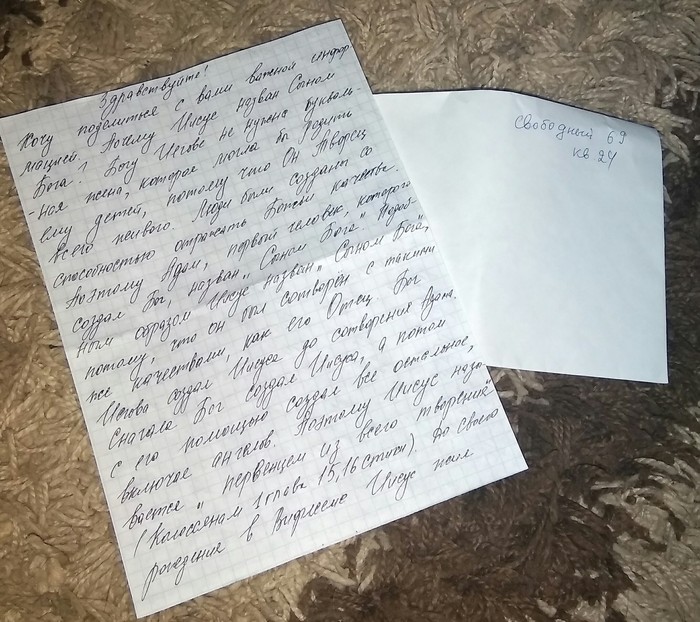 Здравствуйте!
Хочу поделиться с вами важной инфор
мацией. Почему Иисус назван Сыном
Бога? Богу Иегове не нужна букваль-
-ная жена, которая могла бы родить
ему детей, потому что Он Творец
всего живого. Люди были созданы со
способностью отражать Божьи качества.
Поэтому Адам, первый человек, которого
создал Бог, назван „Сыном Бога" Подоб-
ным образом Иисус назван „Сыном Бога",
потому, что он был сотворён с такими
же качествами, как его Отец. Бог
Иегова создал Иисуса до сотворения Адама.
Сначала Бог создал Иисуса, а потом
с его помощью создал всё остальное,
включая ангелов. Поэтому Иисус назы-
вается „первенцем из всего творения"
(Колоссянам 1 глава 15,16 стихи). До своего
рождения в Вифлееме Иисус жил
Свободный 69
кв 24